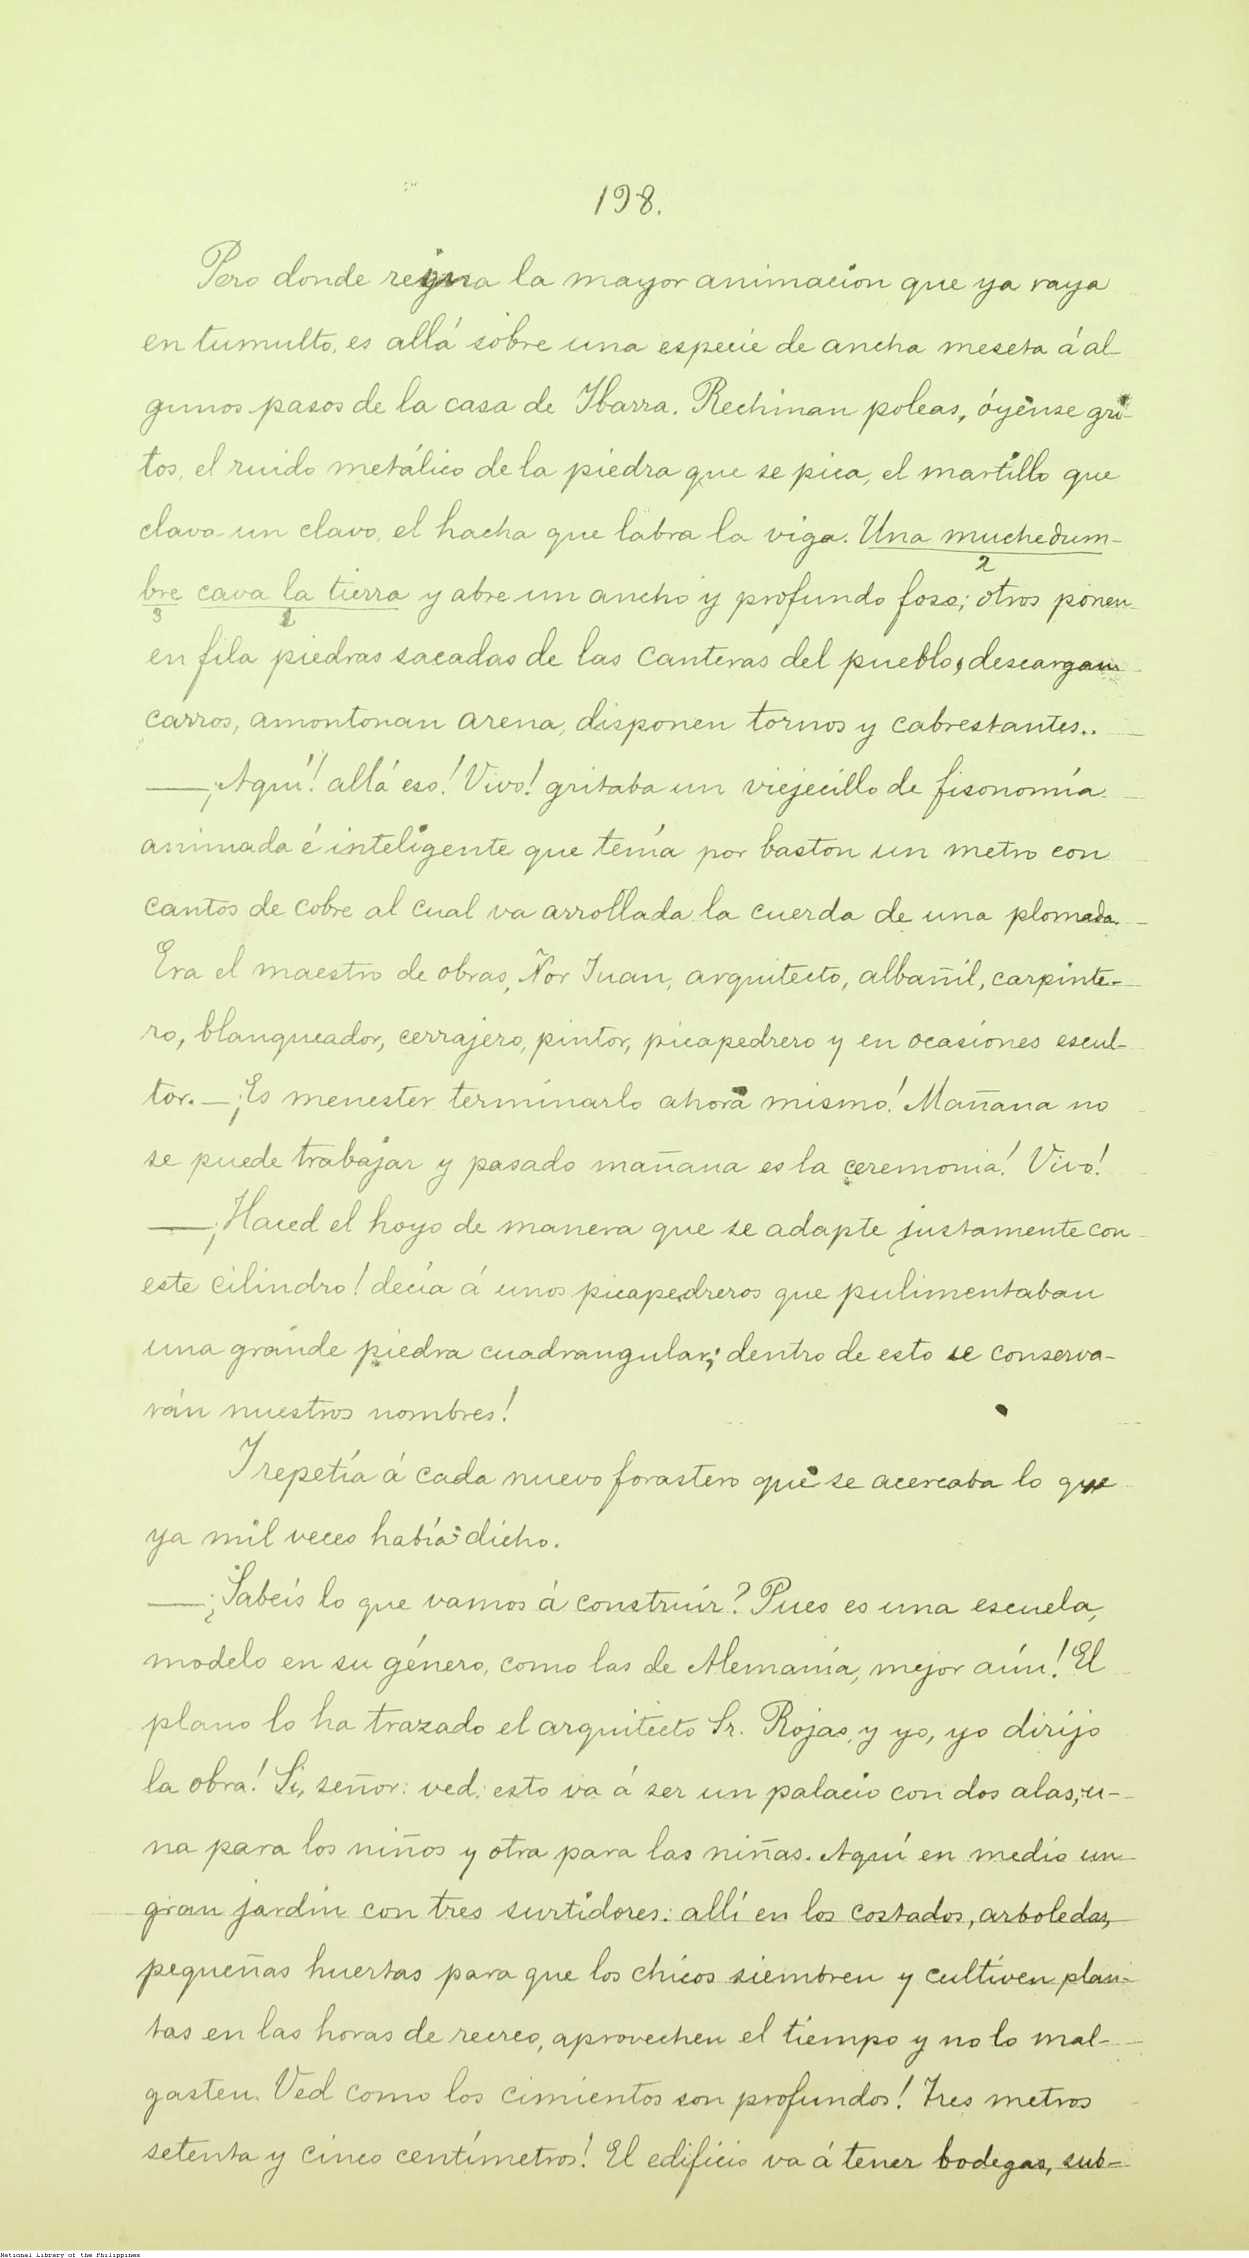 198.
Pero donde reyna la mayor animacion que ya raya
en tumulto, es allá sobre una especie de ancha meseta á al-
gunos pasos de la casa de Ibarra. Rechinan poleas, óyense gri-
tos, el ruido metálico de la piedra que se pica, el martillo que
clava un clavo, el hacha que labra la viga. Una muchedum-
2
bre cava la tierra y abre un ancho y profundo foso; otros ponen
3 1
en fila piedras sacadas de las canteras del pueblo, descargan
carros, amontonan arena, disponen tornos y cabrestantes..
—¡Aquí! allá eso! Vivo! gritaba un viejecillo de fisonomía
animada é inteligente que tenía por baston un metro con
cantos de cobre al cual va arrollada la cuerda de una plomada.
Era el maestro de obras, Ñor Juan, arquitecto, albañil, carpinte-
ro, blanqueador, cerrajero, pintor, picapedrero y en ocasiones escul-
tor. —¡Es menester terminarlo ahora mismo! Mañana no
se puede trabajar y pasado mañana es la ceremonia! Vivo!
—¡Haced el hoyo de manera que se adapte justamente con
este cilindro! decía á unos picapedreros que pulimentaban
una grande piedra cuadrangular; dentro de esto se conserva-
rán nuestros nombres!
Y repetía á cada nuevo forastero que se acercaba lo que
ya mil veces había dicho.
—¿Sabeis lo que vamos á construir? Pues es una escuela,
modelo en su género, como las de Alemania, mejor aún! El
plano lo ha trazado el arquitecto Sr. Rojas, y yo, yo dirijo
la obra! Si, señor: ved, esto va á ser un palacio con dos alas, u-
na para los niños y otra para las niñas. Aquí en medio un
gran jardin con tres surtidores: allí en los costados, arboledas,
pequeñas huertas para que los chicos siembren y cultiven plan-
tas en las horas de recreo, aprovechen el tiempo y no lo mal-
gasten. Ved como los cimientos son profundos! Tres metros
setenta y cinco centímetros! El edificio va á tener bodegas, sub-
National Library of the Philippines